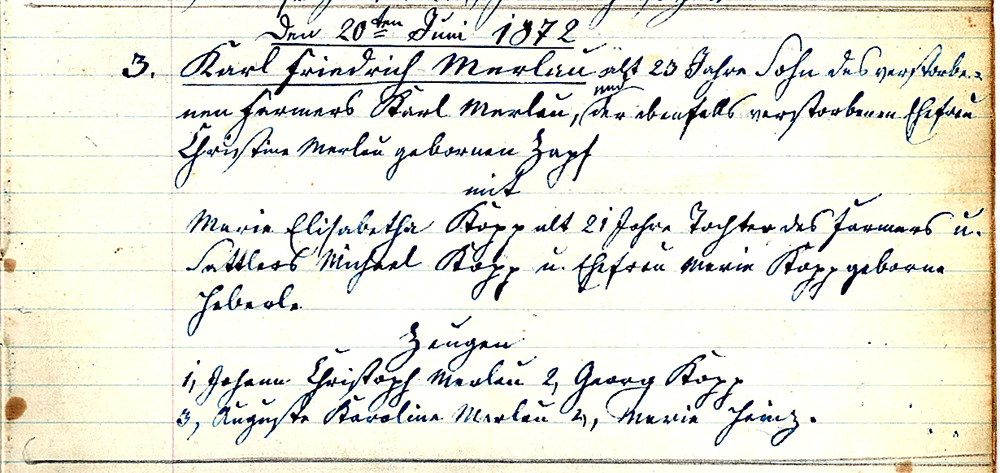 Den 20ten Juni 1872
3. Karl Friedrich Merlau alt 23 Jahre Sohn des verstorbe-
nen Farmers Karl Merlau, und der ebenfalls verstorbenen Ehefrau
Christine Merlau gebornen Zapf
mit
Marie Elisabetha Kopp alt 21 Jahre Tochter des Farmers u.
Sattlers Michael Kopp u. Ehefrau Marie Kopp geborne
Heberle
Zeugen
1, Johann Christoph Merlau 2, Georg Kopp
3, Auguste Karoline Merlau 4, Marie Heinz.